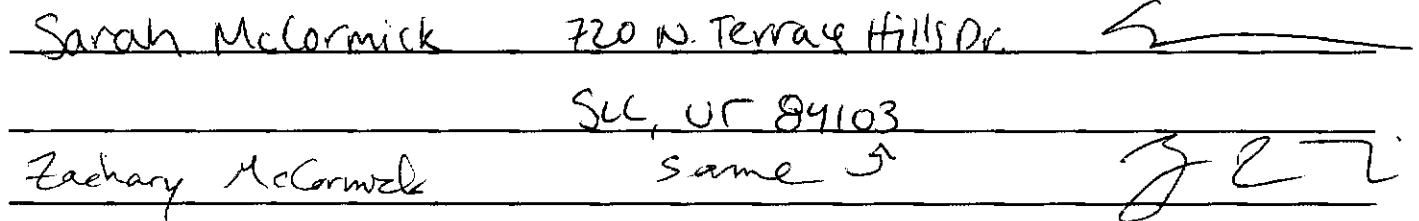 Sarah McCormick 720 N. Terrace Hills Dr.
SLC, UT 84103
Zachary McCormick same